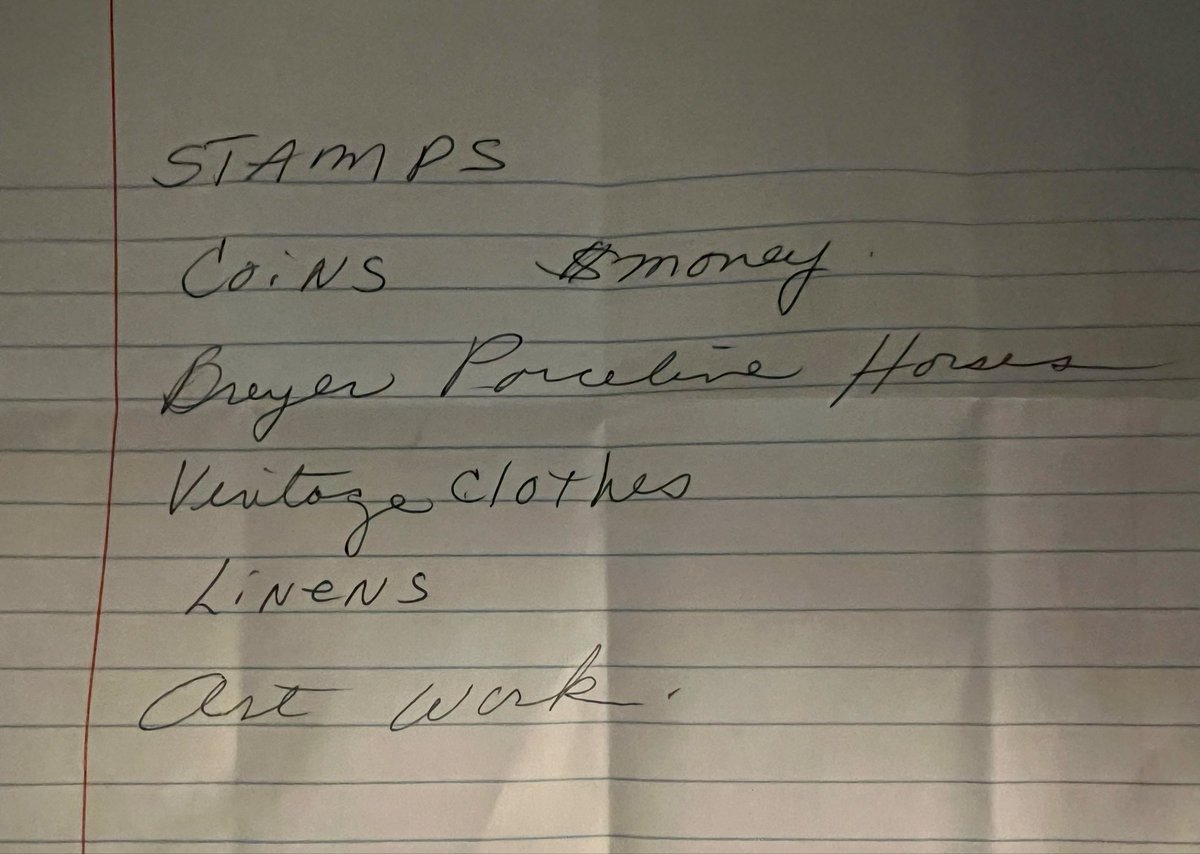 STAMPS
Coins $money.
Breyer Porceline Horses
Vintage Clothes
Linens
Art work.